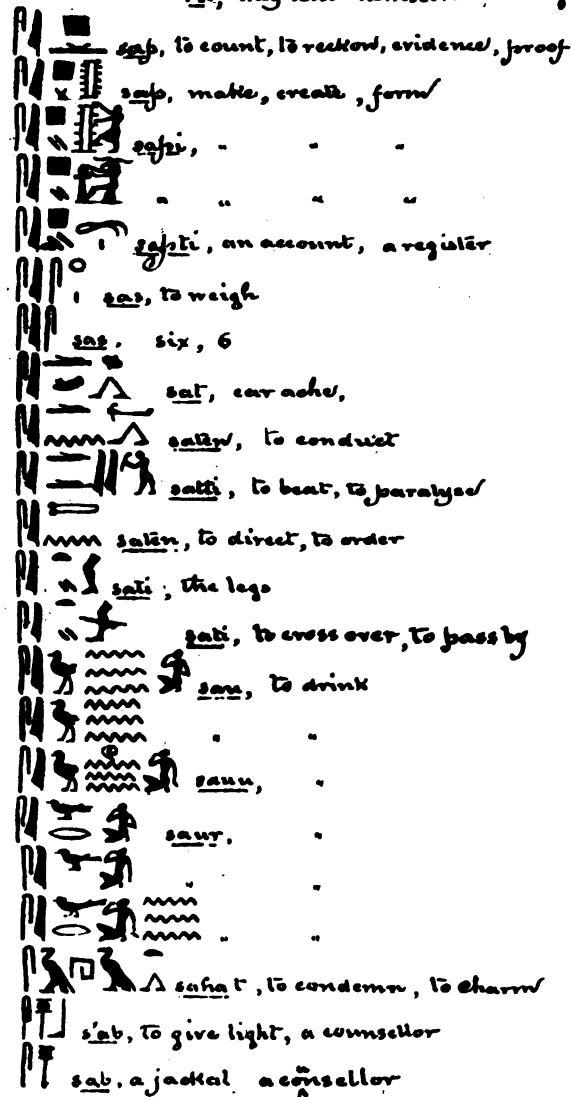 sap, to count, to reckon, evidence, proof
sap, make, create, form
sapi, " " "
" " " "
sapti, an account, a register
sas, to weigh
sas. six, 6
sat, ear ache,
saten, to conduct
satti, to beat, to paralyse
saten, to direct, to order
sati, the legs
sati, to cross over, to pass by
sau, to drink
" "
sauu, "
saur, "
" "
" "
sahat, to condemn, to charm
s'ab, to give light, a counsellor
sab, a jackal a counsellor